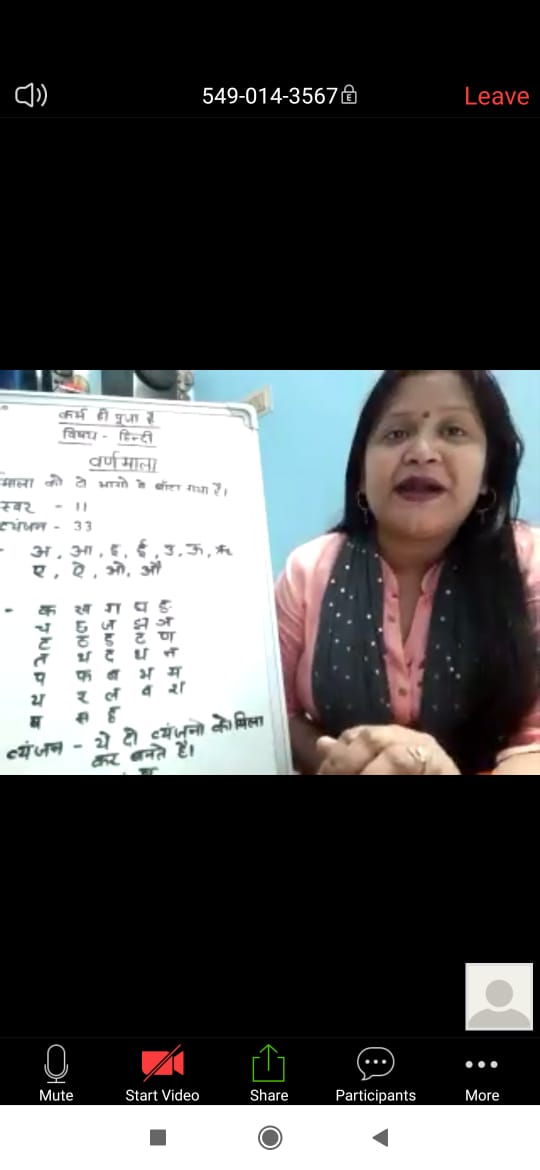 549-014-3567
Leave
कर्म ही पूजा है
विषय - हिन्दी
वर्णमाला
माला को दो भागो में बाँटा गया है।
स्वर - 11
व्यंजन - 33
- अ, आ, इ, ई, उ, ऊ, ऋ
ए, ऐ, ओ, औ
- क ख ग घ ङ
च छ ज झ ञ
ट ठ ड ढ ण
त थ द ध न
प फ ब भ म
य र ल व श
ष स ह
व्यंजन - ये दो व्यंजनो को मिला
कर बनते हैं।
Mute
Start Video
Share
Participants
More